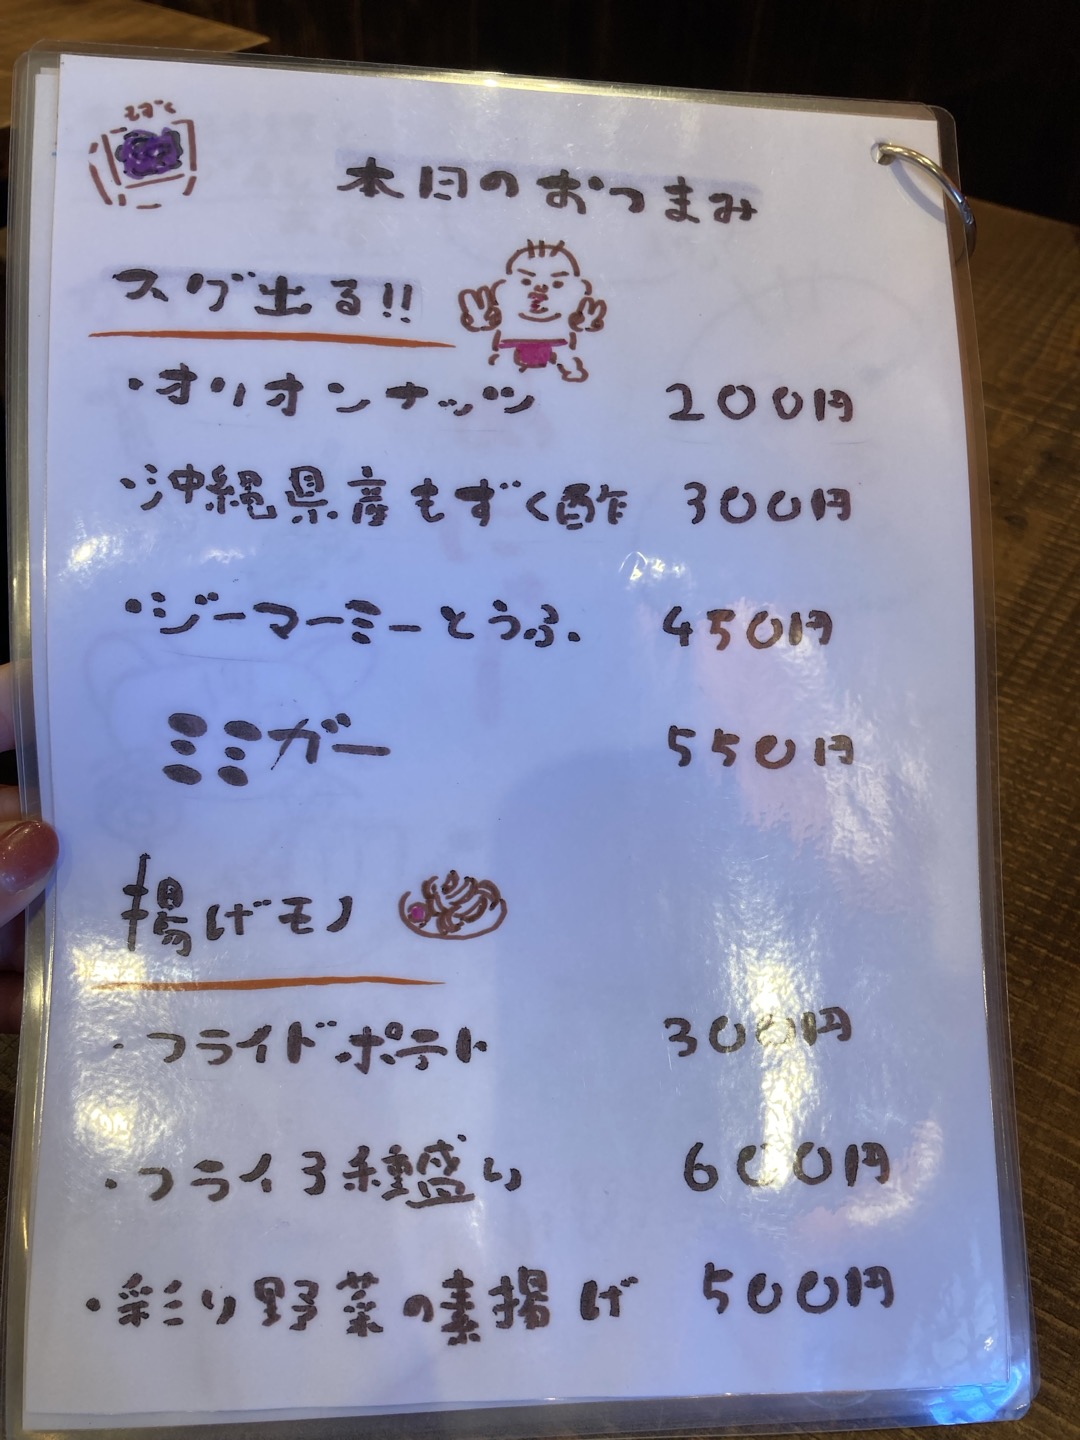 もずく
本日のおつまみ
スグ出る!!
・オリオンナッツ 200円
・沖縄県産もずく酢 300円
・ジーマーミーとうふ 450円
ミミガー 550円
揚げモノ
・フライドポテト 300円
・フライ3種盛り 600円
・彩り野菜の素揚げ 500円